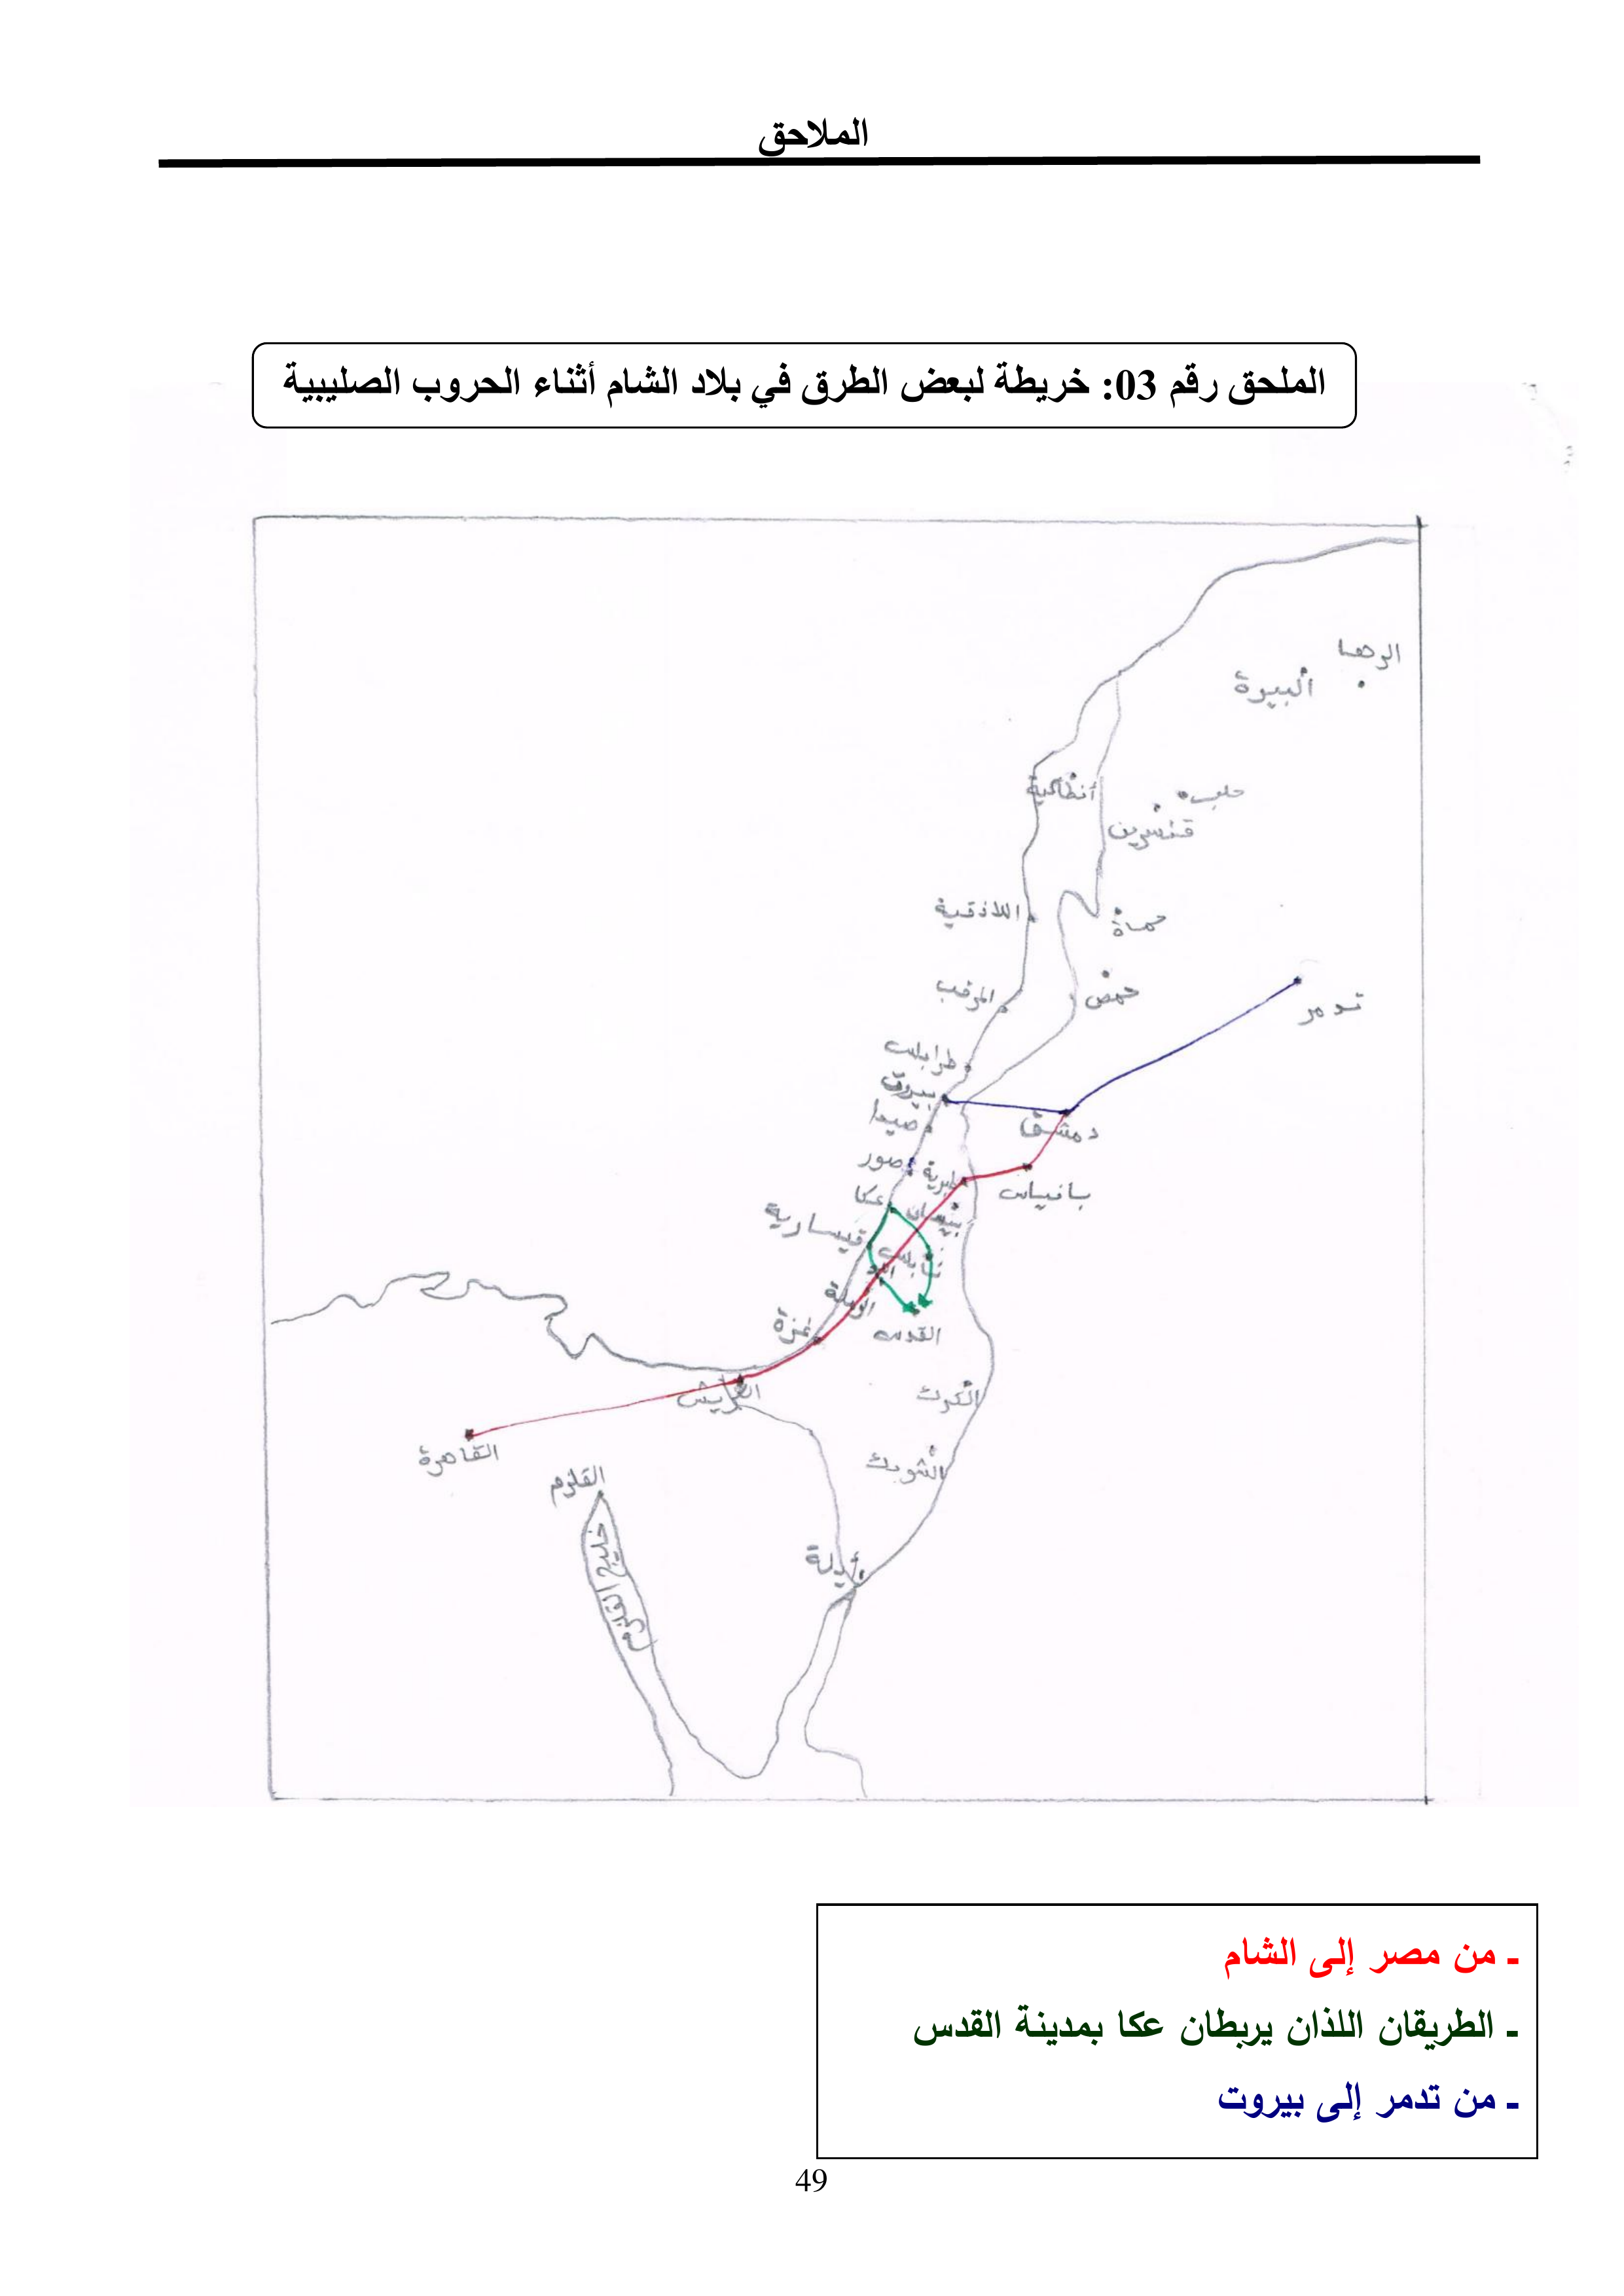 الملاحق
الملحق رقم 03: خريطة لبعض الطرق في بلاد الشام أثناء الحروب الصليبية
الرها
البيرة
أنطاكية
حلب
قنسرين
اللاذقية
حماة
المرقب
حمص
تدمر
طرابلس
بيروت
صيدا
دمشق
صور
طبرية
بانياس
عكا
بيسان
قيسارية
نابلس
اللد
الرملة
غزة
القدس
العريش
الكرك
القاهرة
الشوبك
القلزم
خليج القلزم
أيلة
ـ من مصر إلى الشام
ـ الطريقان اللذان يربطان عكا بمدينة القدس
ـ من تدمر إلى بيروت
49